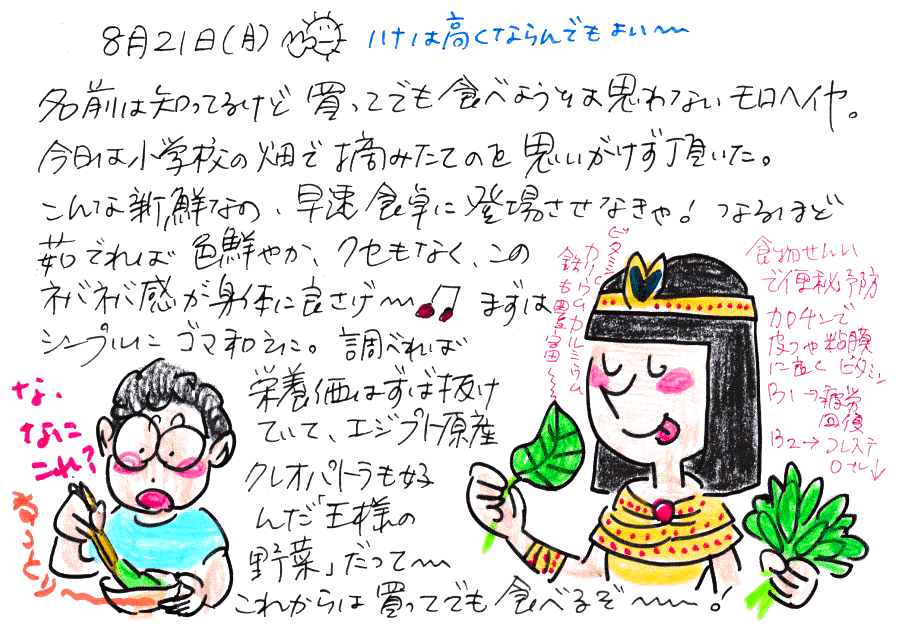 8月21日(月) ハナは高くならんでもよい〜
名前は知ってるけど 買ってでも食べようとは思わないモロヘイヤ。
今日は小学校の畑で摘みたてのを思いがけず頂いた。
こんな新鮮なの、早速食卓に登場させなきゃ! なるほど
茹でれば色鮮やか、クセもなく、この
ネバネバ感が身体に良さげ〜♫ まずは
シンプルにゴマ和えに。調べれば
栄養価はずば抜け
ていて、エジプト原産
クレオパトラも好
んだ「王様の
野菜」だって〜
これからは買ってでも食べるぞ〜〜!
な、
なに
これ?
ねっとり
ビタミン
カリウムカルシウム
鉄も豊富〜
食物せんい
で便秘予防
カロチンで
皮フや粘膜
に良く ビタミン
B1→疲労
回復
B2→コレステ
ロール↓